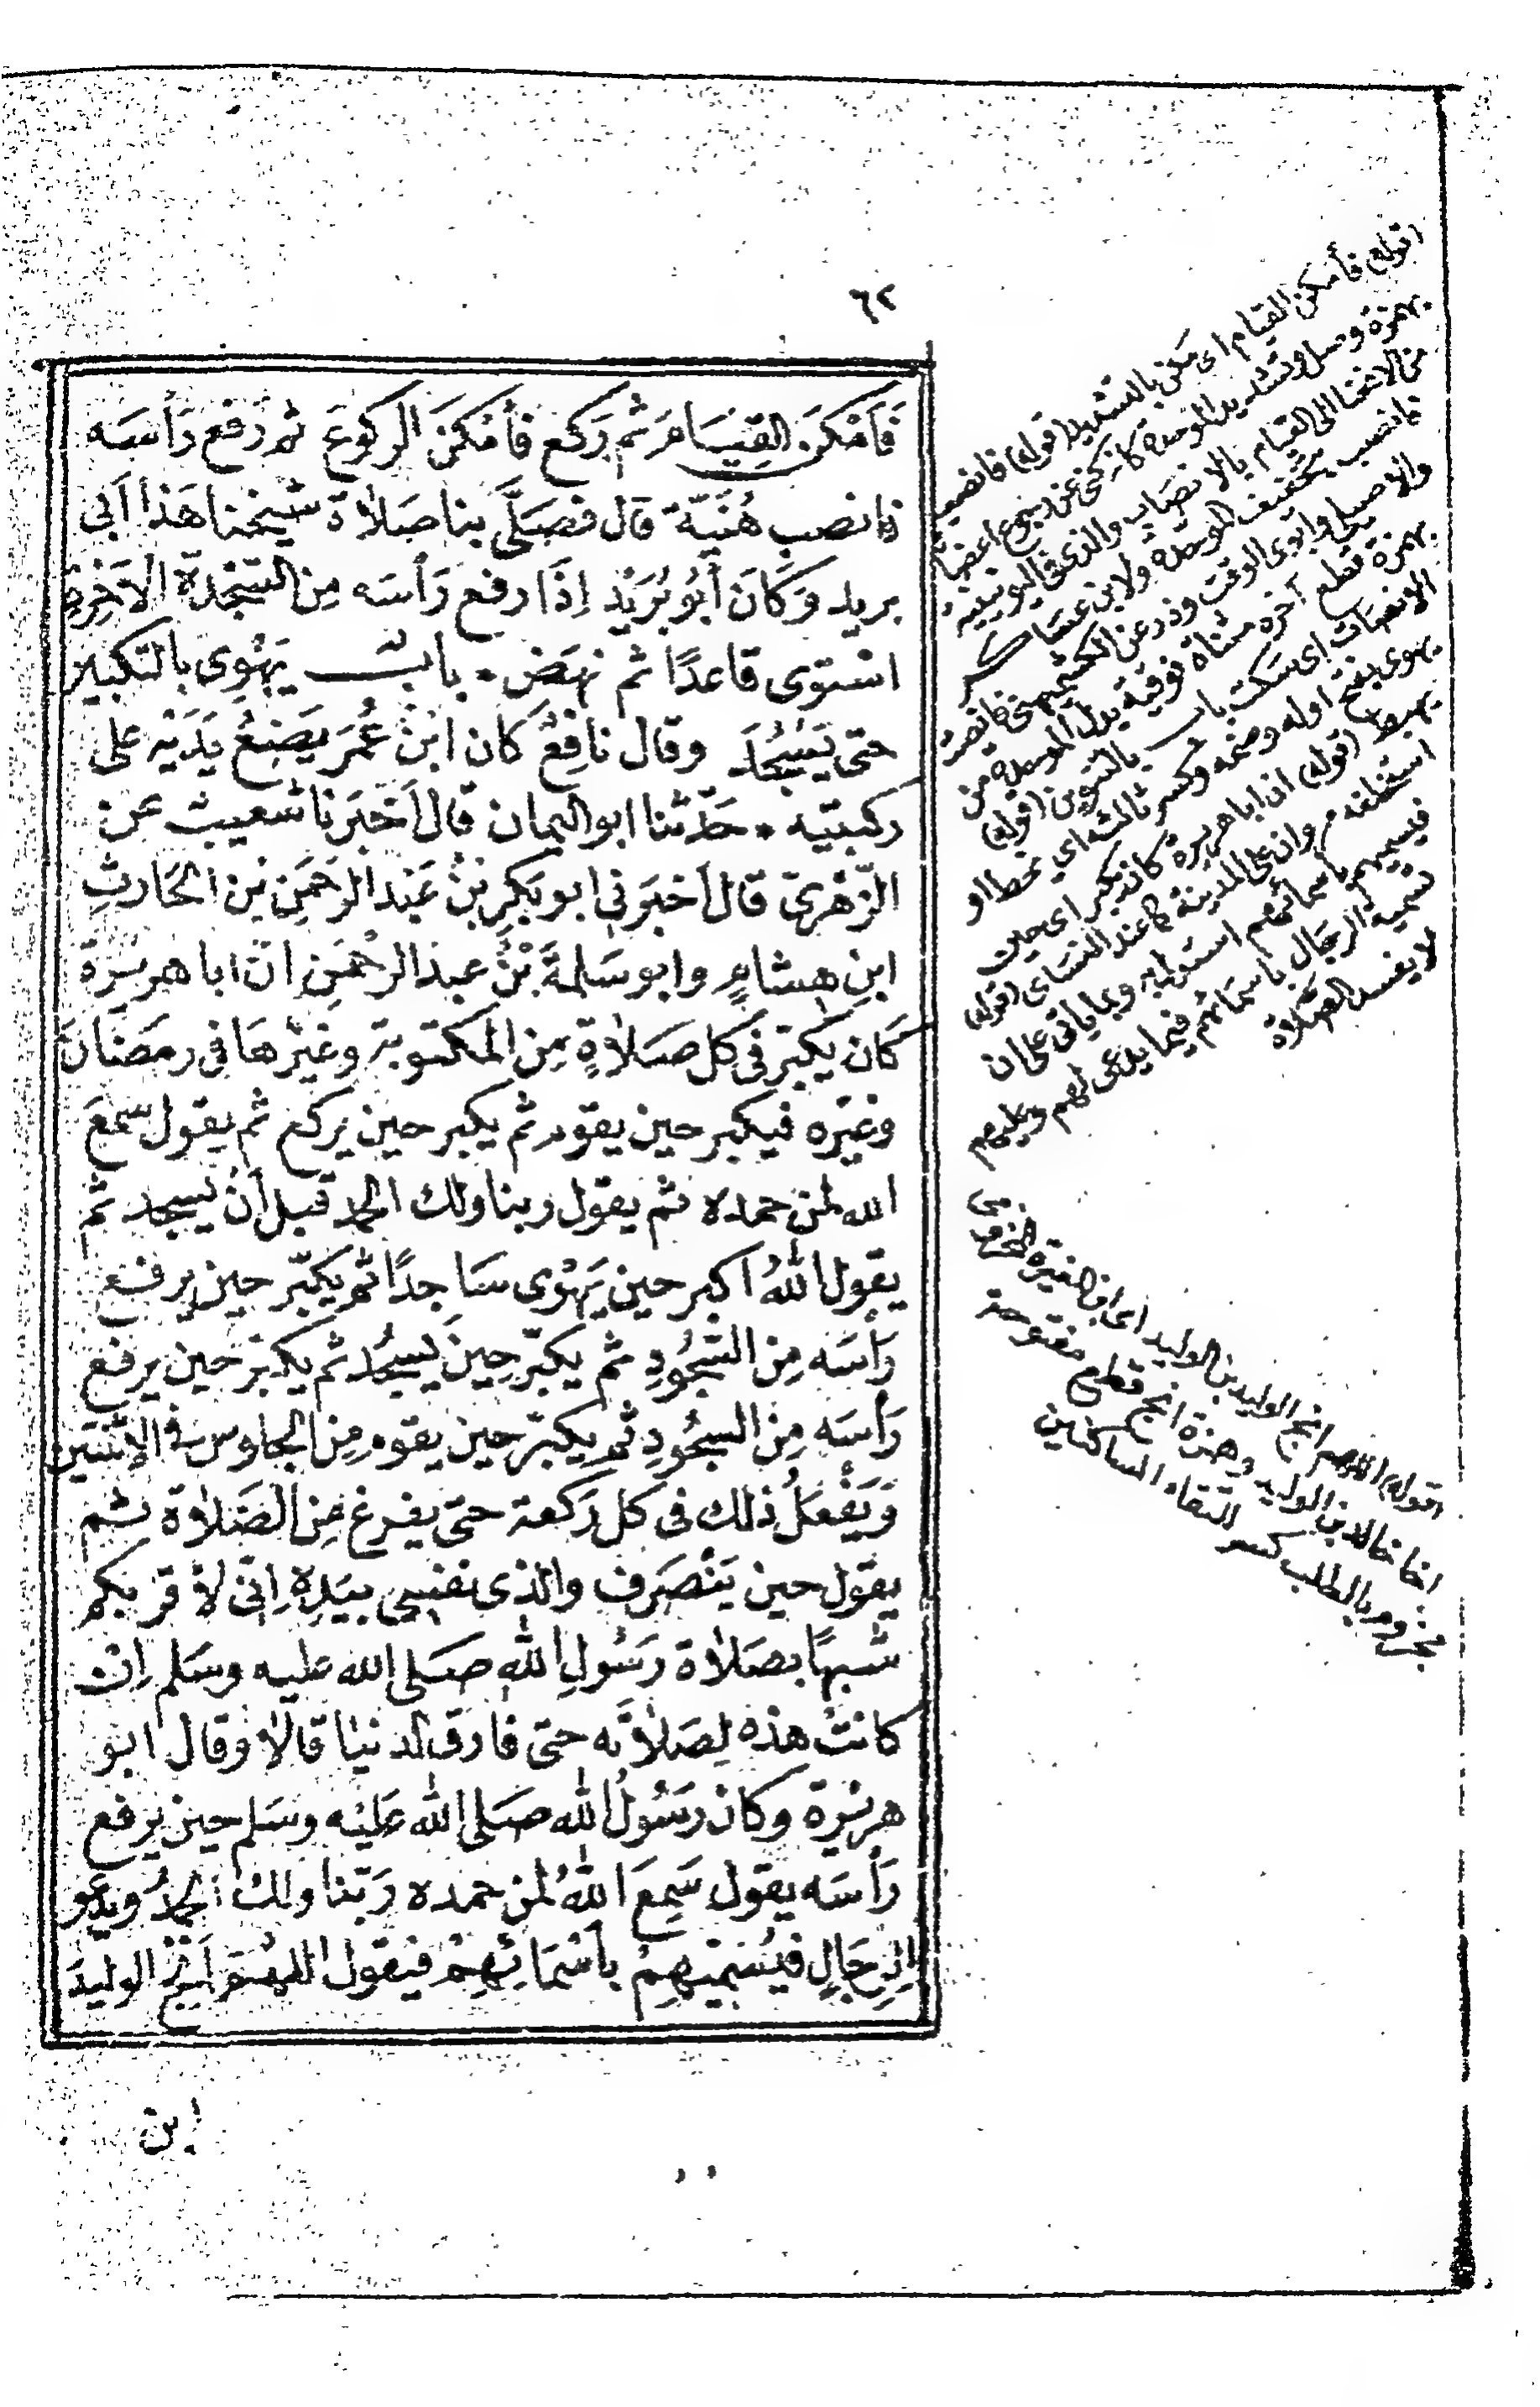 ٦٢
فَأَمْكَنَ القِيَامَ ثم رَكع فأمْكنَ الركوعَ ثم رَفع رَأسَه
فانصب هُنَيّة قال فصَلَّى بنا صَلاة شيخنا هَذا أبى
بريد وَكَانَ أبُو بُرَيْد إذَا رفع رَأسَه مِنَ السَّجْدَة الآخِرة
اسْتوى قاعدًا ثم نهَض ۰ باب يَهْوِى بالتكبير
حتى يَسْجُدَ وقال نافِعٌ كان ابنُ عُمَرَ يَضَعُ يَدَيْه على
ركبتيه ۰ حَدّثنا ابو اليمان قالَ أخْبَرنا شعيب عن
الزّهْرىّ قال أخبرَنى ابو بَكرِ بنُ عَبْد الرحمَنِ بْنِ الحَارثِ
ابنِ هِشامٍ وابو سَلمةَ بْنُ عبد الرحْمَنِ انّ ابا هريرة
كَان يكبّر فى كل صَلاةٍ مِن المكتوبة وغيْرهَا فى رمضانَ
وغيْره فيكبر حين يقوم ثم يكبر حين يركع ثم يقول سمعَ
الله لمن حمده ثم يقول ربنا ولك الحمد قبل أنْ يسجد ثم
يقول اللهُ اكبر حين يَهْوى سَاجدًا ثم يكبّر حين يرفع
رَأسَه مِنَ السّجُودِ ثم يكبّر حِينَ يسجُد ثم يكبّر حين يرفع
رَأسَه مِنَ السجُودِ ثم يكبّر حين يقوم مِنَ الجلوس فى الاثنتين
وَيَفْعَلُ ذلك فى كل رَكعة حتى يفرغ مِنَ الصَّلاة ثم
يقول حين يَنْصَرِف والذى نفسِى بيَدِهِ إنّى لأقربكم
شبهًا بصَلاة رَسُولِ الله صَلى الله عليه وسَلم إنْ
كانتْ هذه لصَلاتَه حتى فارق الدنيا قالا وقال ابو
هريْرة وكان رسُولُ الله صَلى الله عَليْه وسَلم حين يرفع
رَأسَه يقول سَمِعَ اللهُ لمن حمده رَبّنا ولك الحمدُ ويدعو
لِرِجَالٍ فيُسَمّيْهِمْ بأسْمَائِهِمْ فيَقول اللّهُمّ أنْجِ الوليدَ
ابن
(قوله) فأمكن القيام اى مكن بالتشديد (قوله) فانصب
بهمزة وصل وتشديد الموحدة كانه كنى عن رجوع اعضائه
من الانحنا الى القيام بالانصباب والذى فى اليونينية
فانصب بتخفيف الموحدة ولابن عساكر
والاصيلى وابوى الوقت وذر عن الكشميهنى فانصت
بهمزة قطع آخره مثناة فوقية بدل الموحدة من
الانصات اى سكت باب بالتنوين (قوله)
يهوى بفتح اوله وضمه وكسر ثالثه اى ينحط او
يهبط (قوله) ان ابا هريرة كان يكبر اى حين
استخلفه مروان على المدينة كما عند النسائى (قوله)
فيسميهم باسمائهم استدل به وبما ياتى على ان
تسمية الرجال باسمائهم فيما يدعى لهم وعليهم
لا يفسد الصلاة
(قوله) اللهم انج الوليد بن الوليد اى ابن المغيرة المخزومى
اخا خالد بن الوليد وهمزة انج قطع مفتوحة
مجزوم بالطلب كسر لالتقاء الساكنين